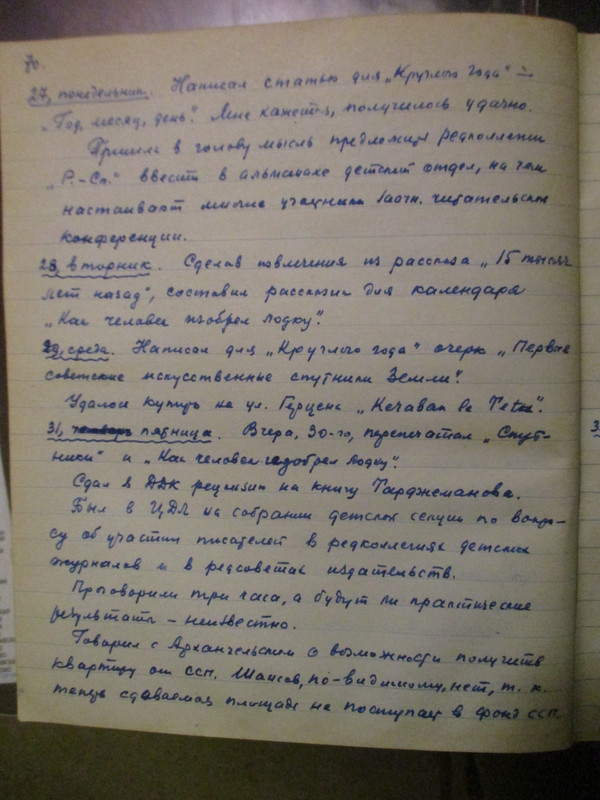 70.
27, понедельник. Написал статью для „Круглого года" –
„Год, месяц, день". Мне кажется, получилось удачно.
Пришла в голову мысль предложить редколлегии
„Р.-Сп." ввести в альманахе детский отдел, на чём
настаивают многие участники заочн. читательской
конференции.
28, вторник. Сделав извлечения из рассказа „15 тысяч
лет назад", составил рассказик для календаря
„Как человек изобрел лодку".
29, среда. Написал для „Круглого года" очерк „Первые
советские искусственные спутники Земли".
Удалось купить на ул. Герцена
31, пятница. Вчера, 30-го, перепечатал „Спут-
ники" и „Как человек изобрел лодку".
Сдал в ДДК рецензию на книгу Тарджеманова.
Был в ЦДЛ на собрании детской секции по вопро-
су об участии писателей в редколлегиях детских
журналов и в редсоветах издательств.
Проговорили три часа, а будут ли практические
результаты – неизвестно.
Говорил с Архангельским о возможности получить
квартиру от ССП. Шансов, по-видимому, нет, т. к.
теперь сдаваемая площадь не поступает в фонд ССП.
3